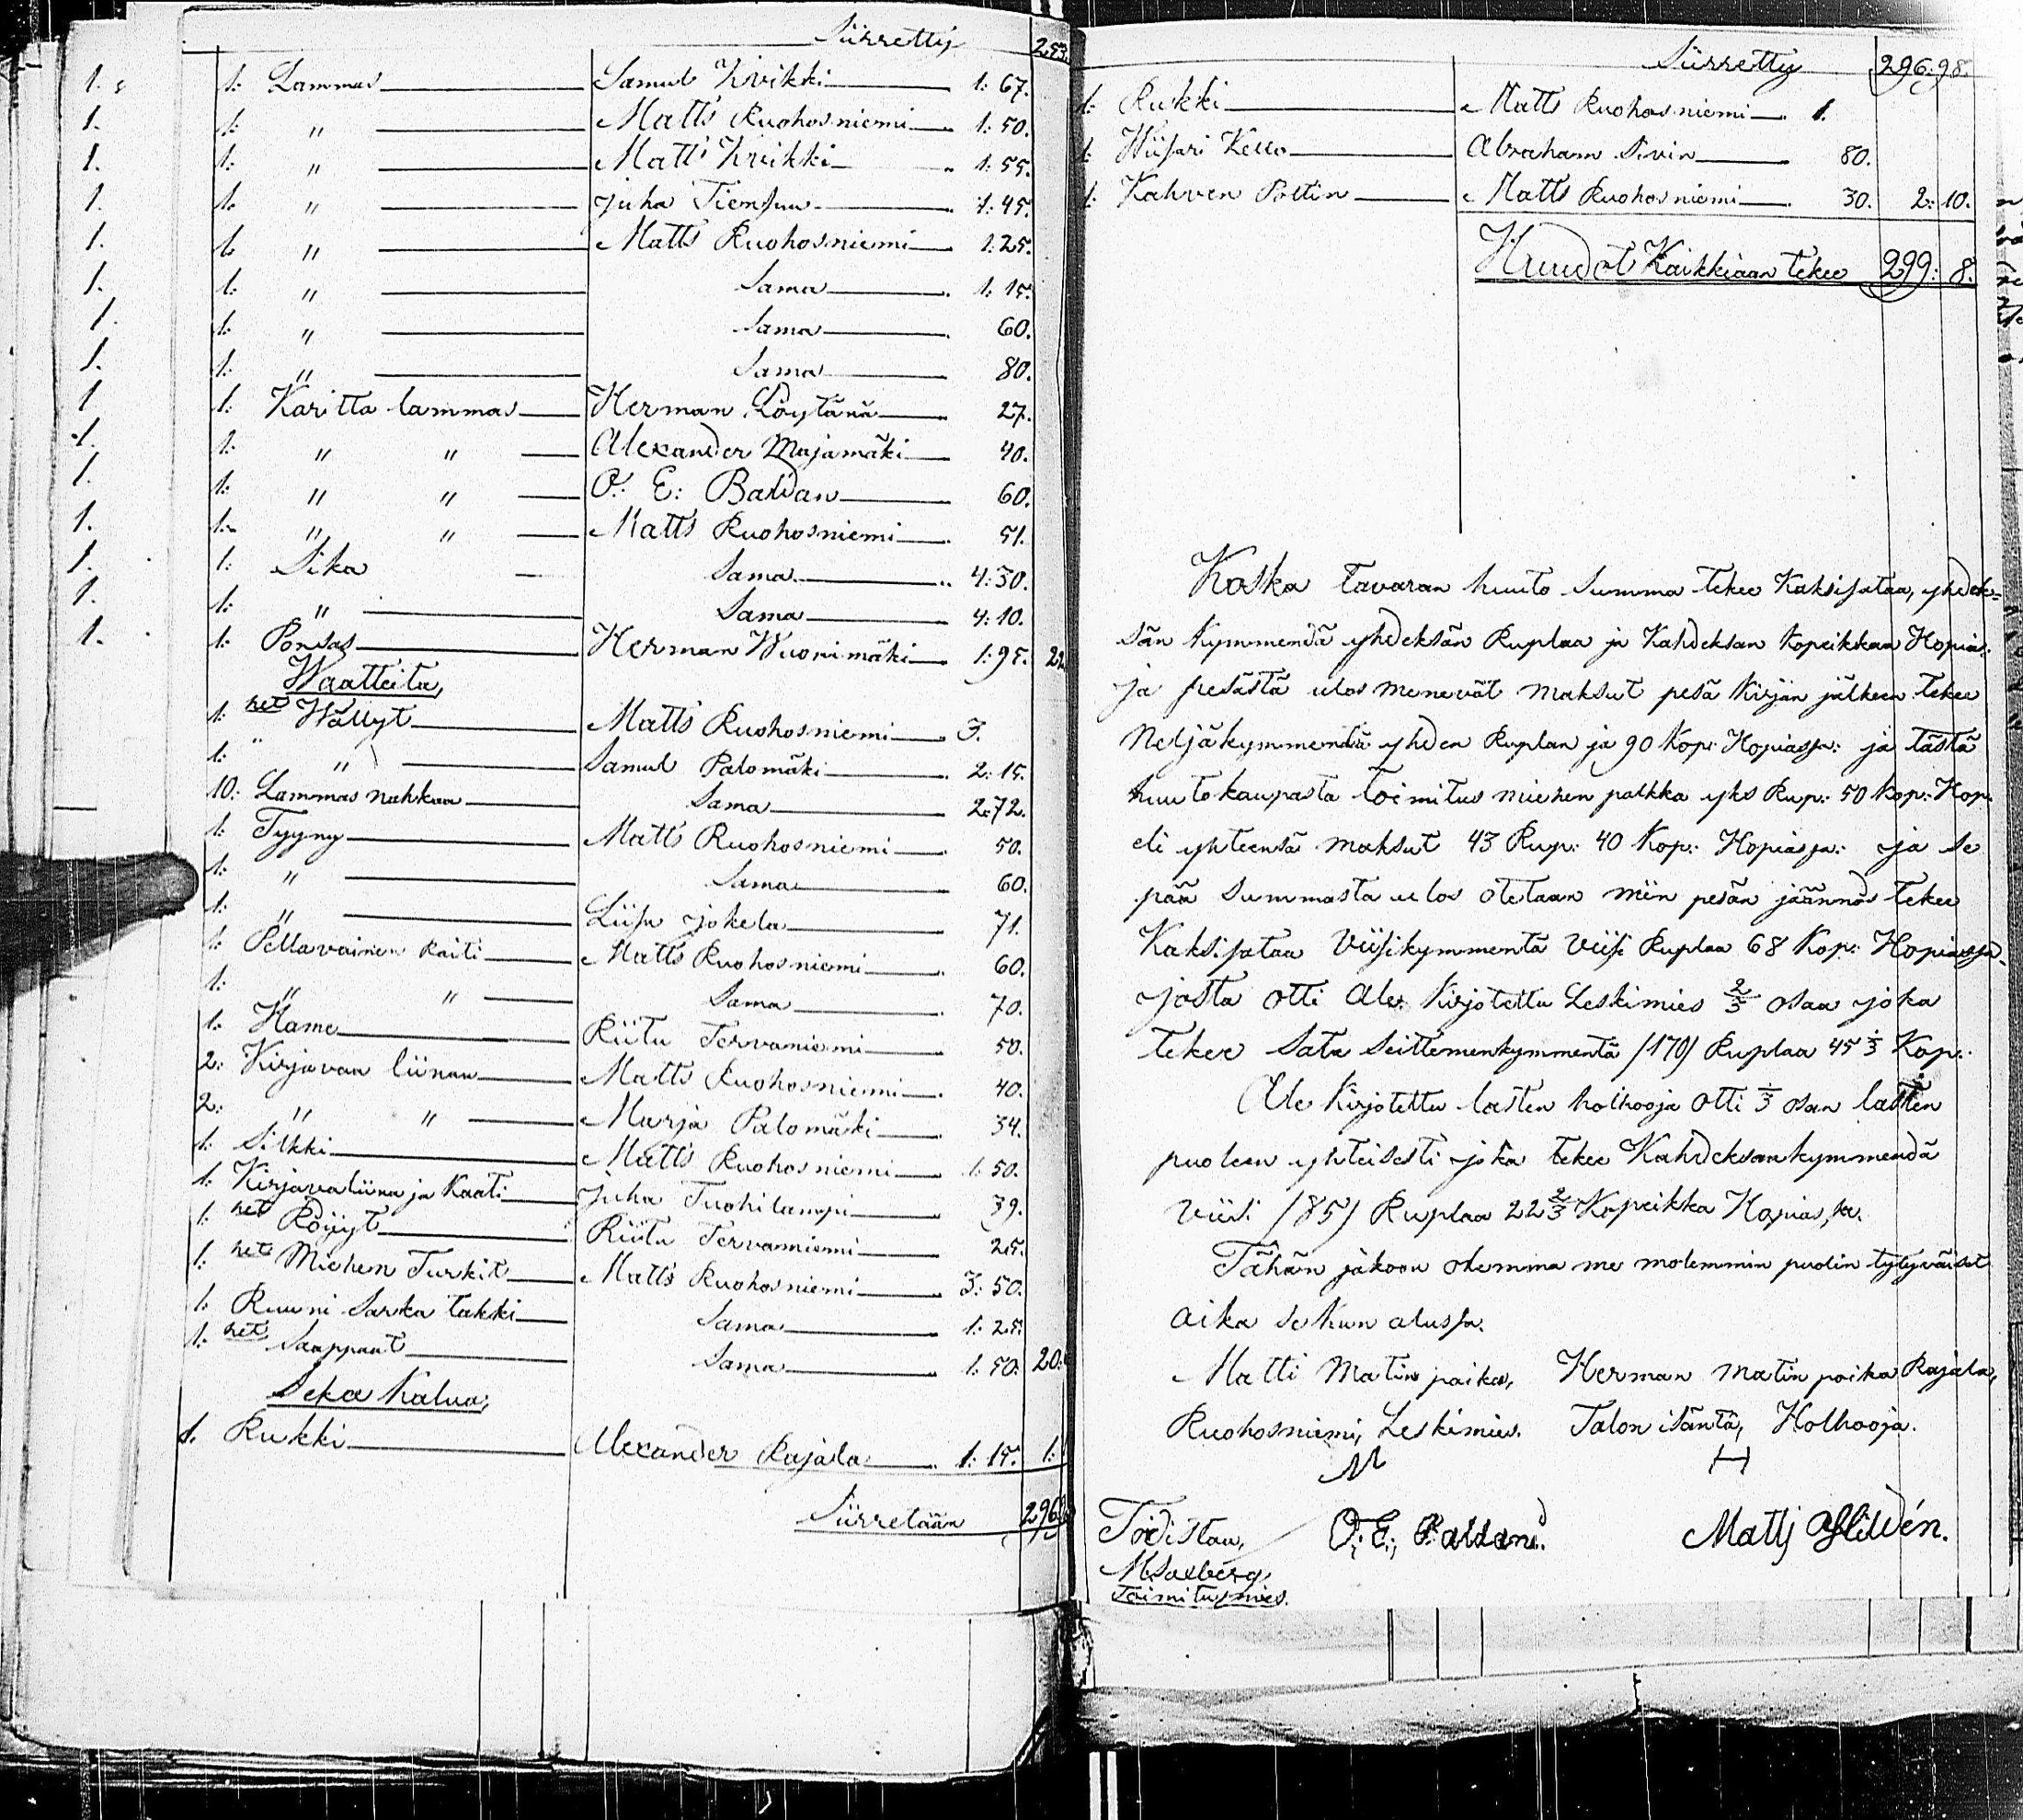 Siirretty 253.
1. 1: Lammas Samul Krikki 1: 67.
1. 1: " Matts Ruohosniemi 1: 50.
1. 1: " Matts Krikki 1: 55.
1. 1: " Juha Tiensuu 1: 45.
1. 1: " Matts Ruohosniemi 1: 25.
1. 1: " Sama 1: 15.
1. 1: " Sama 60.
1. 1: " Sama 80.
1 1: Karitta lammas Herman Löytänä 27.
1. 1: " " Alexander Majamäki 40.
1. 1: " " O: E: Baldan 60.
1. 1: " " Matts Ruohosniemi 51.
1. 1: Sika Sama 4: 30.
1. 1: " Sama 4: 10.
1. 1: Porsas Herman Wuorimäki 1: 95.
Waatteita,
1: ret Wällyt Matts Ruohosniemi 3.
1: " " Samul Palomäki 2: 15.
10: Lammas nahkaa Sama 2: 72.
1: Tyyny Matts Ruohosniemi 50.
1: " Sama 60.
1: " Liisa Jokela 71.
1: Pellavainen Raiti Matts Ruohosniemi 60.
1: " " Sama 70.
1: Hame Riitu Tervaniemi 50.
2: Kirjavaa liinaa Matts Ruohosniemi 40.
2: " " Marja Palomäki 34.
1: Silkki Matts Ruohosniemi 1: 50.
1: Kirjavaliina ja Kaati Juha Tuohilampi 39.
1: ret Röijyt Riitu Tervaniemi 25.
1: ret Miehen Turkit Matts Ruohosniemi 3: 50.
1: Ruuni Sarka takki Sama 1: 25.
1: ret Saappaat Sama 1: 50. 20:
Seka Kalua,
1. Rukki Alexander Rajala 1: 15. 1:
Siirretään 296:
Siirretty 296: 98.
1: Rukki Matts Ruohosniemi 1.
1: Wiisari Kello Abraham Sivin 80.
1: Kahven Poltin Matts Ruohosniemi 30. 2: 10.
Huudot Kaikkiaan tekee 299: 8.
Koska tavaran huuto summa tekee Kaksisataa, yhdek=
sän kymmendä yhdeksän Ruplaa ja Kahdeksan kopeikkaa Hopia:
ja pesästä ulos menevät maksut pesä Kirjan jälkeen tekee
Neljäkymmendä yhden Ruplan ja 90 Kop: Hopiassa: ja tästä
huutokaupasta toimitus miehen palkka yks Rup: 50 Kop: Hop.
eli yhteensä maksut 43 Rup: 40 Kop: Hopiassa: ja se
pää summasta ulos otetaan niin pesän jäännös tekee
Kaksisataa Viisikymmentä Viisi Ruplaa 68 Kop: Hopiassa,
josta otti Ale Kirjotettu Leskimies 2/3 osaa joka
tekee Sata Seittemenkymmentä /170/ Ruplaa 45 1/3 Kop:
Ale Kirjotettu lasten holhooja otti 1/3 osan lasten
puoleen yhteisesti joka tekee Kahdeksankymmendä
viisi /85/ Ruplaa 22 2/3 Kopeikka Hopiassa.
Tähän jakoon olemma me molemmin puolin tytyväiset
aika se kun alussa.
Matti Matin poika, Herman Matin poika Rajala,
Ruohosniemi, Leskimies. Talon isäntä, Holhooja.
M H
Todistaa, O: E: Baldan. Matts Ylildén.
M. Saxberg,
Toimitusmies.